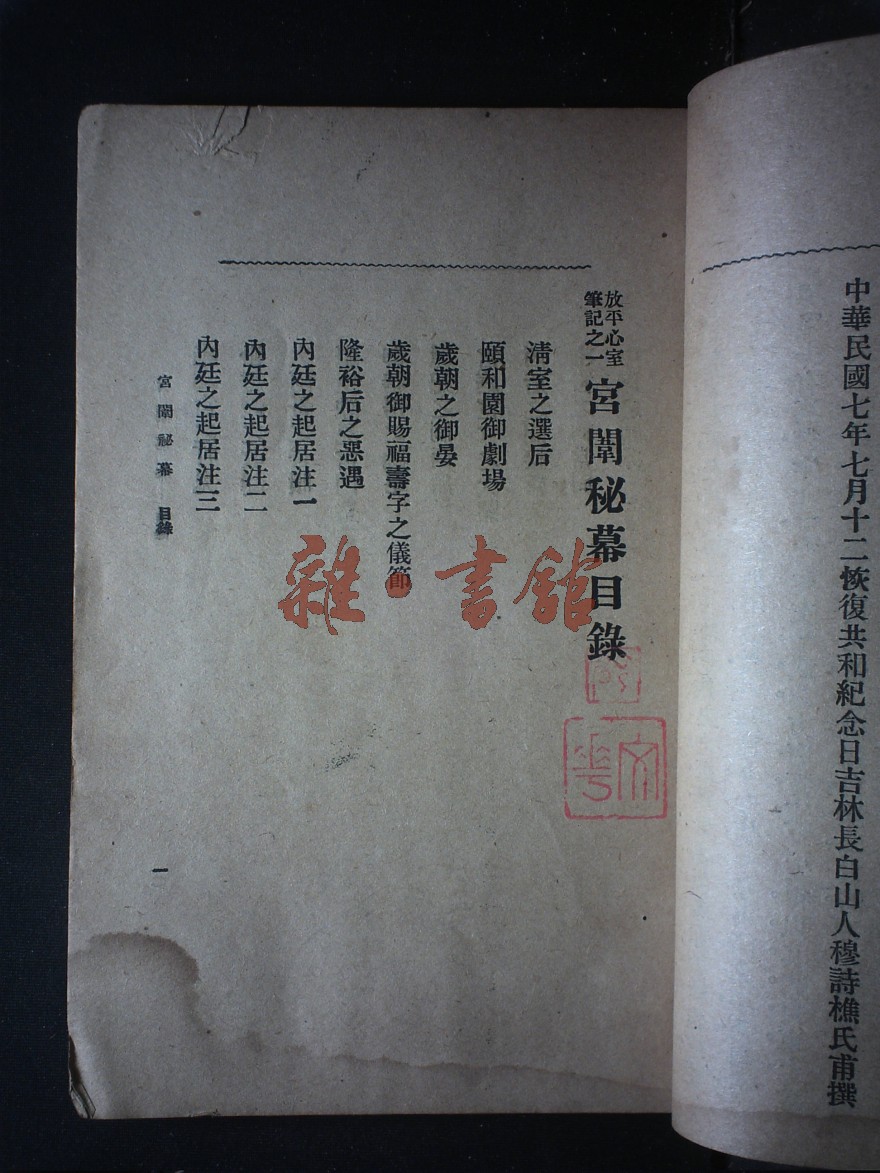 中華民國七年七月十二恢復共和紀念日吉林長白山人穆詩樵氏甫撰
放平心室
筆記之一
宮闈秘幕目錄
清室之選后
頤和園御劇場
歲朝之御晏
歲朝御賜福壽字之儀節
隆裕后之惡遇
內廷之起居注一
內廷之起居注二
內廷之起居注三
宮闈祕幕 目錄
一
雜·書館